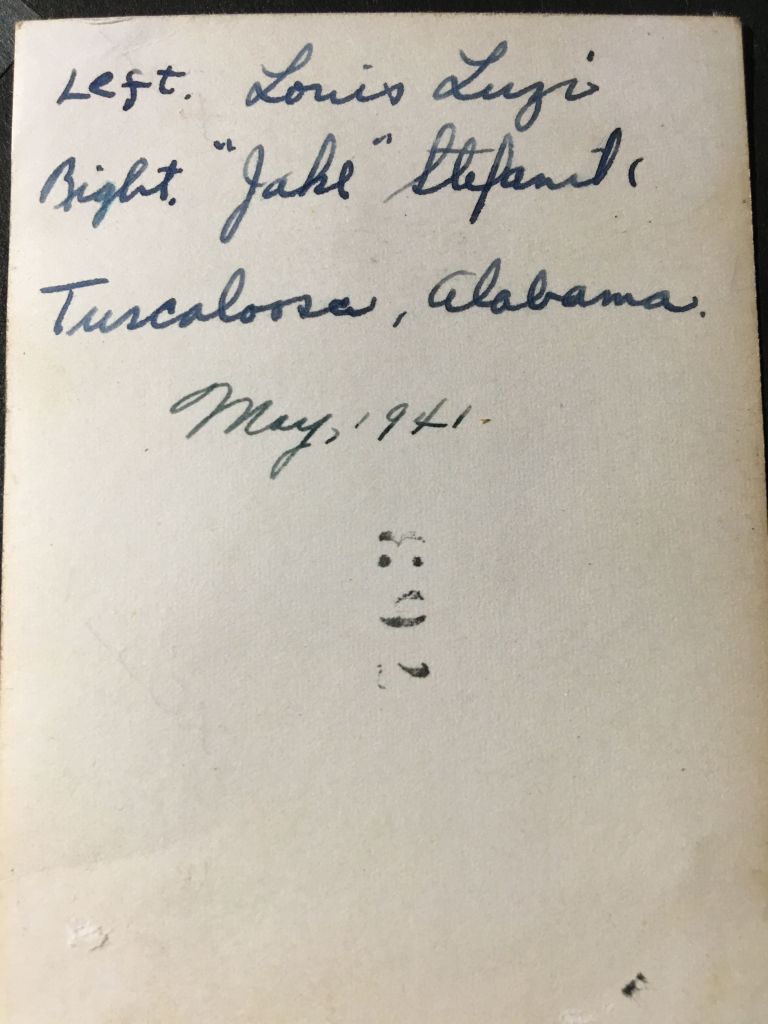 Left. Louis Luzi
Right. "Jake"
Tuscaloosa, Alabama.
May, 1941.